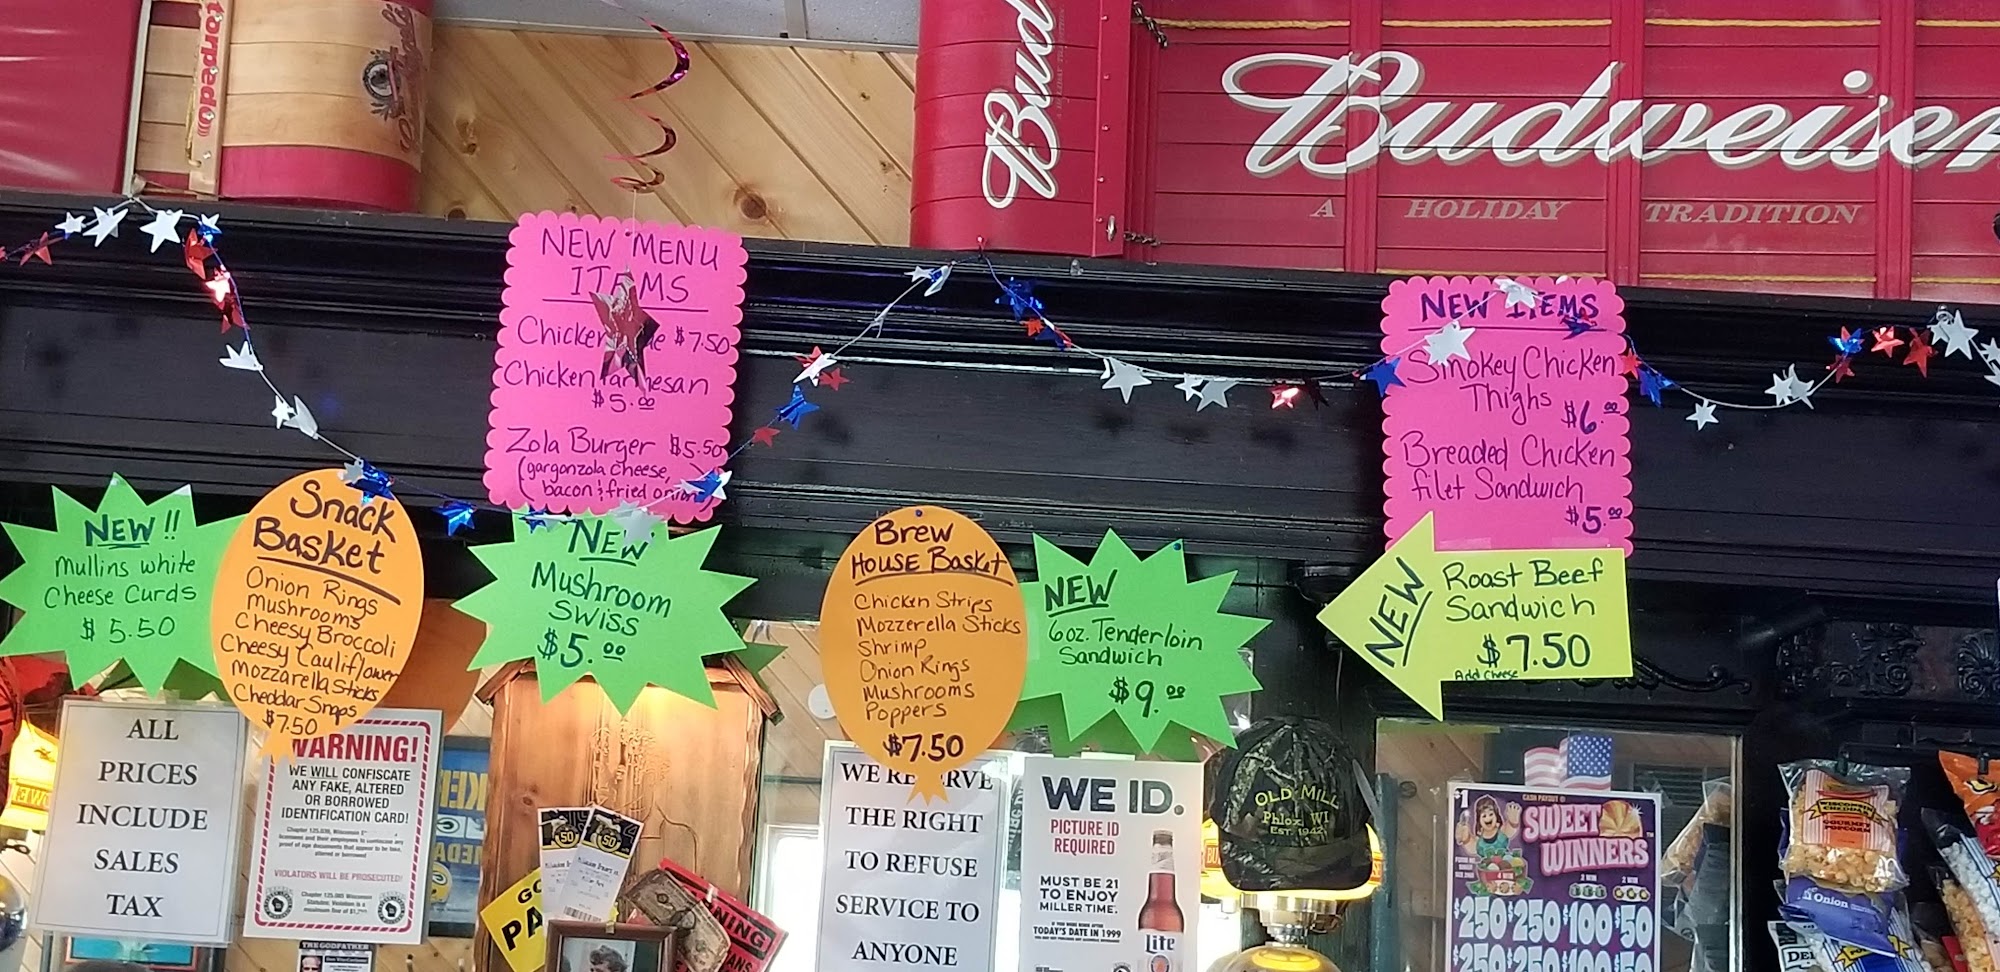 torpedo
Bud
Budweiser
A HOLIDAY TRADITION
NEW MENU
ITEMS
Chicken $7.50
Chicken Parmesan
$5.00
Zola Burger $5.50
(gargonzola cheese,
bacon & fried onion)
NEW ITEMS
Smokey Chicken
Thighs $6.00
Breaded Chicken
filet Sandwich
$5.00
NEW!!
Mullins white
Cheese Curds
$5.50
Snack
Basket
Onion Rings
Mushrooms
Cheesy Broccoli
Cheesy Cauliflower
Mozzarella Sticks
Cheddar Snaps
$7.50
NEW
Mushroom
Swiss
$5.00
Brew
House Basket
Chicken Strips
Mozzerella Sticks
Shrimp
Onion Rings
Mushrooms
Poppers
$7.50
NEW
6oz. Tenderloin
Sandwich
$9.00
NEW
Roast Beef
Sandwich
$7.50
Add Cheese
ALL
PRICES
INCLUDE
SALES
TAX
WARNING!
WE WILL CONFISCATE
ANY FAKE, ALTERED
OR BORROWED
IDENTIFICATION CARD!
VIOLATORS WILL BE PROSECUTED!
THE GODFATHER
50
50
GO
PA
WE RESERVE
THE RIGHT
TO REFUSE
SERVICE TO
ANYONE
WE ID.
PICTURE ID
REQUIRED
MUST BE 21
TO ENJOY
MILLER TIME.
TODAY'S DATE IN 1999
Lite
OLD MILL
Phlox, WI
EST. 1942
$1
CASH PAYOUT
SWEET
WINNERS
$250 $250 $100 $50
$250 $250 $100 $50
WISCONSIN
CHEDDAR
GOURMET
POPCORN
Onion